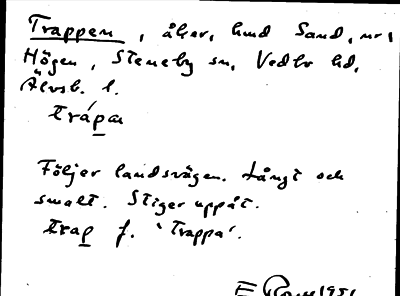 Trappen, åker, hmd Sand, nr 1
Högen, Steneby sn, Vedbo hd,
Älvsb. l.
trápa
Följer landsvägen. Långt och
smalt. Stiger uppåt.
trap f. 'Trappa'.
E 1951